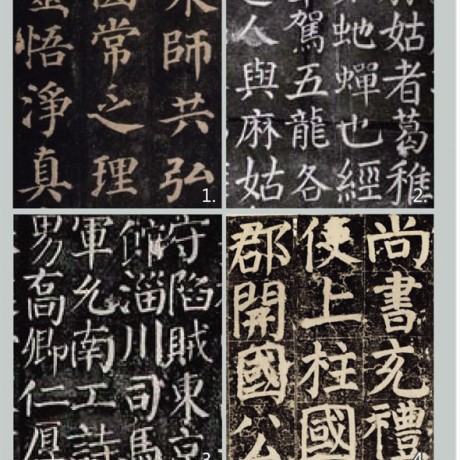 師共弘
常之理
悟淨真
1.
姑者葛稚
虵蟬也經
駕五龍各
人與麻姑
2.
守陷賊東京
館淄川司馬
軍允南工詩
男高卿仁厚
3.
尚書充禮
使上柱國
郡開國公
4.